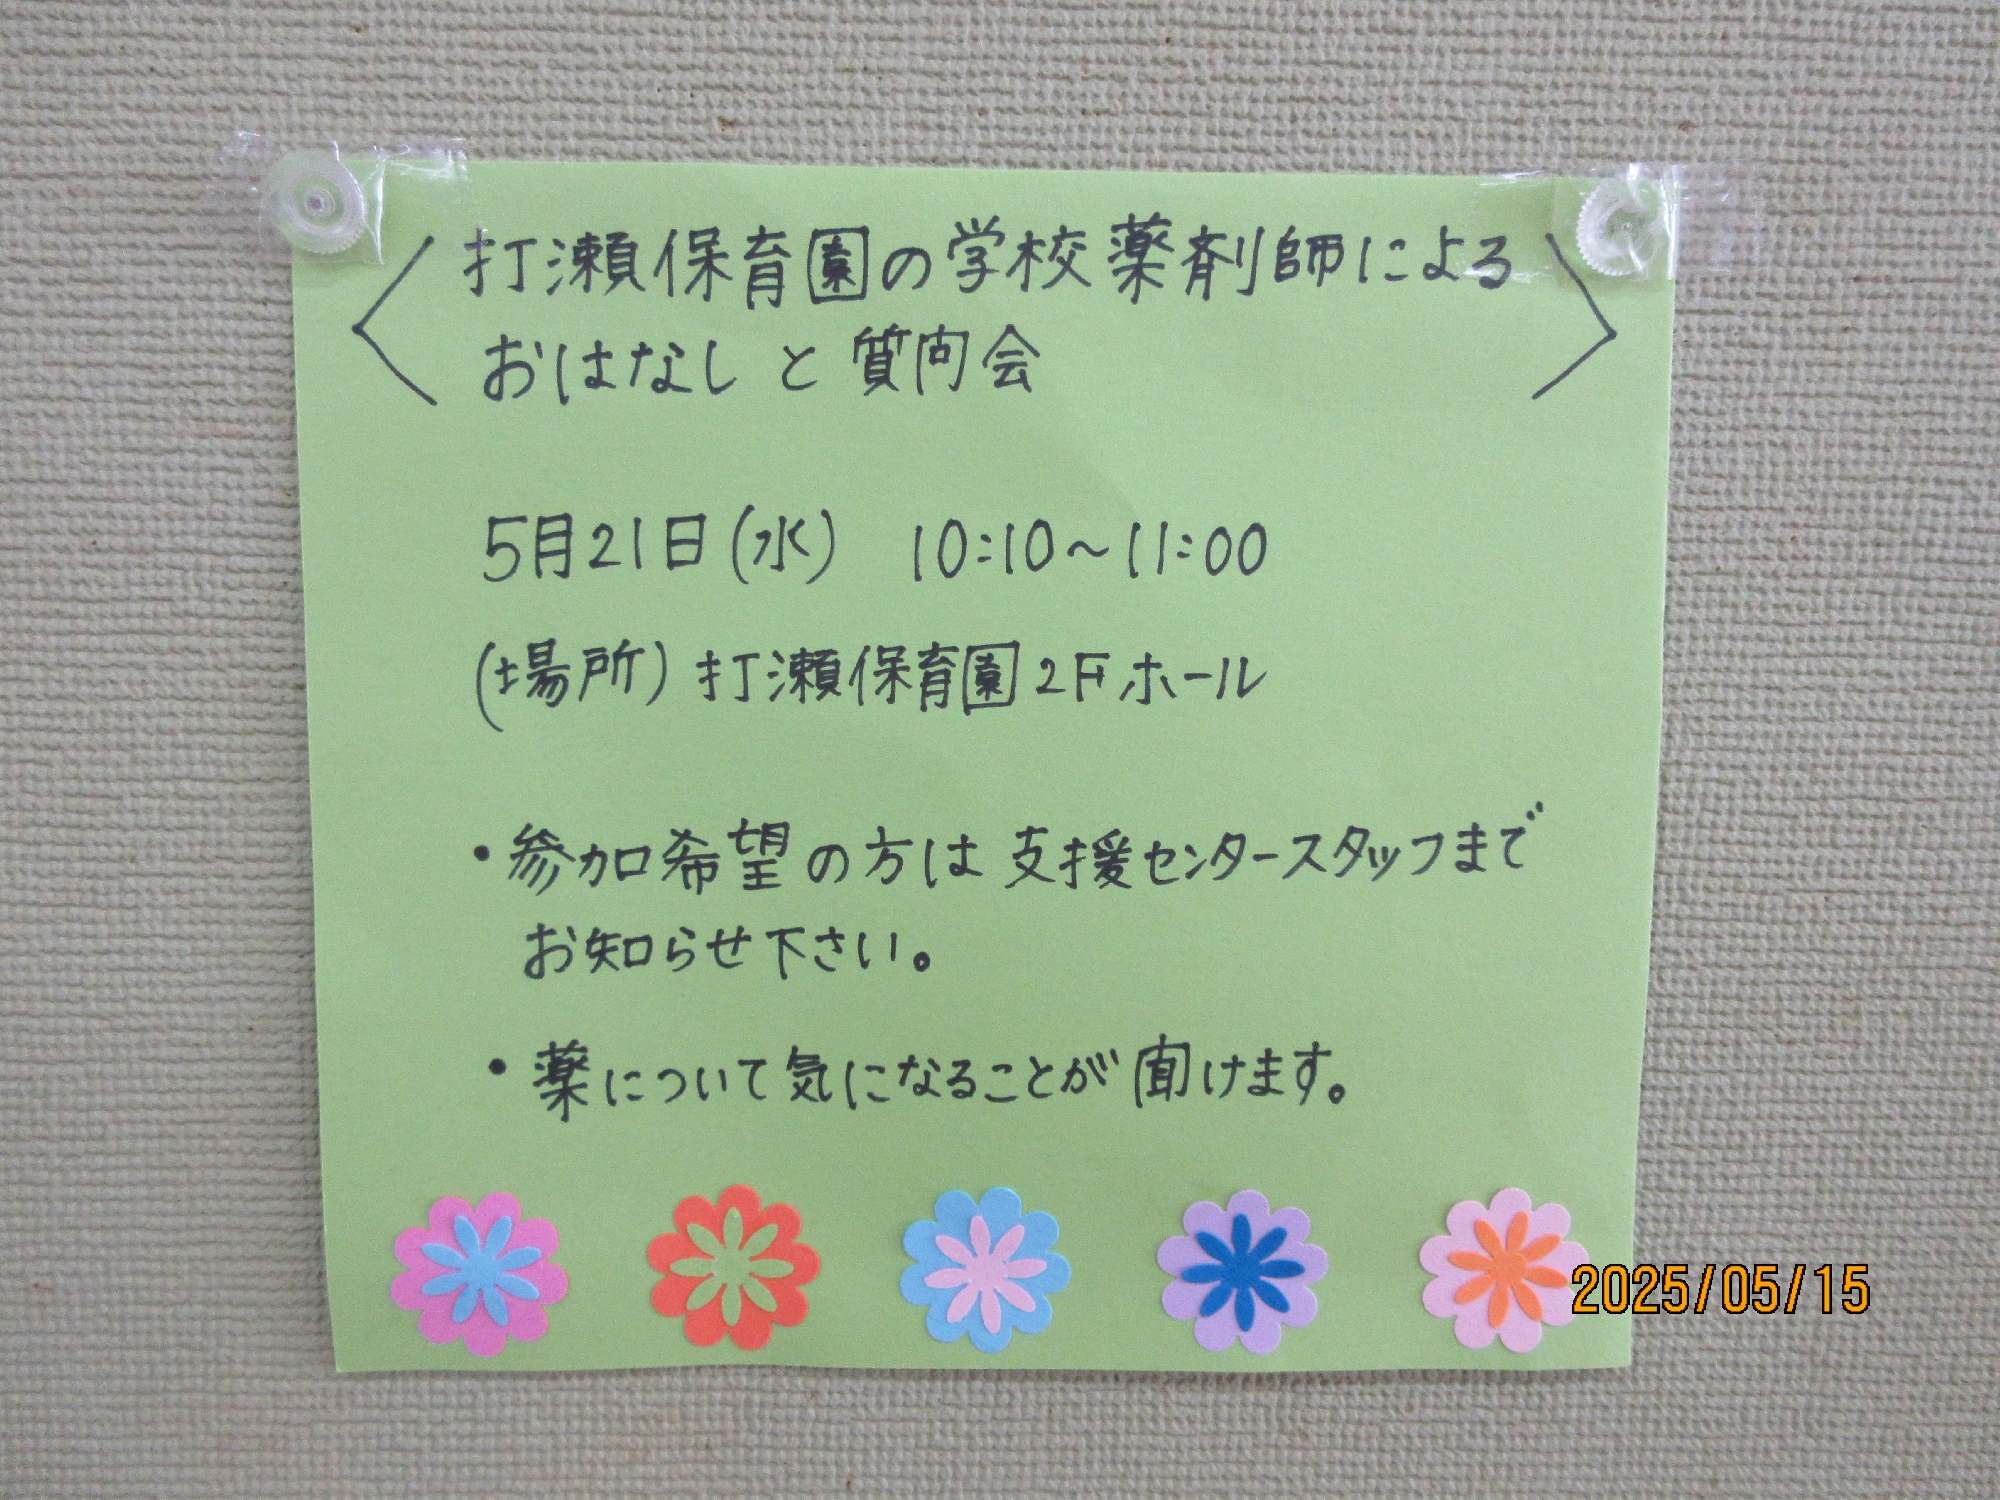 〈打瀬保育園の学校薬剤師による
おはなしと質問会〉
5月21日(水) 10:10～11:00
(場所) 打瀬保育園2Fホール
・参加希望の方は支援センタースタッフまで
お知らせ下さい。
・薬について気になることが聞けます。
2025/05/15